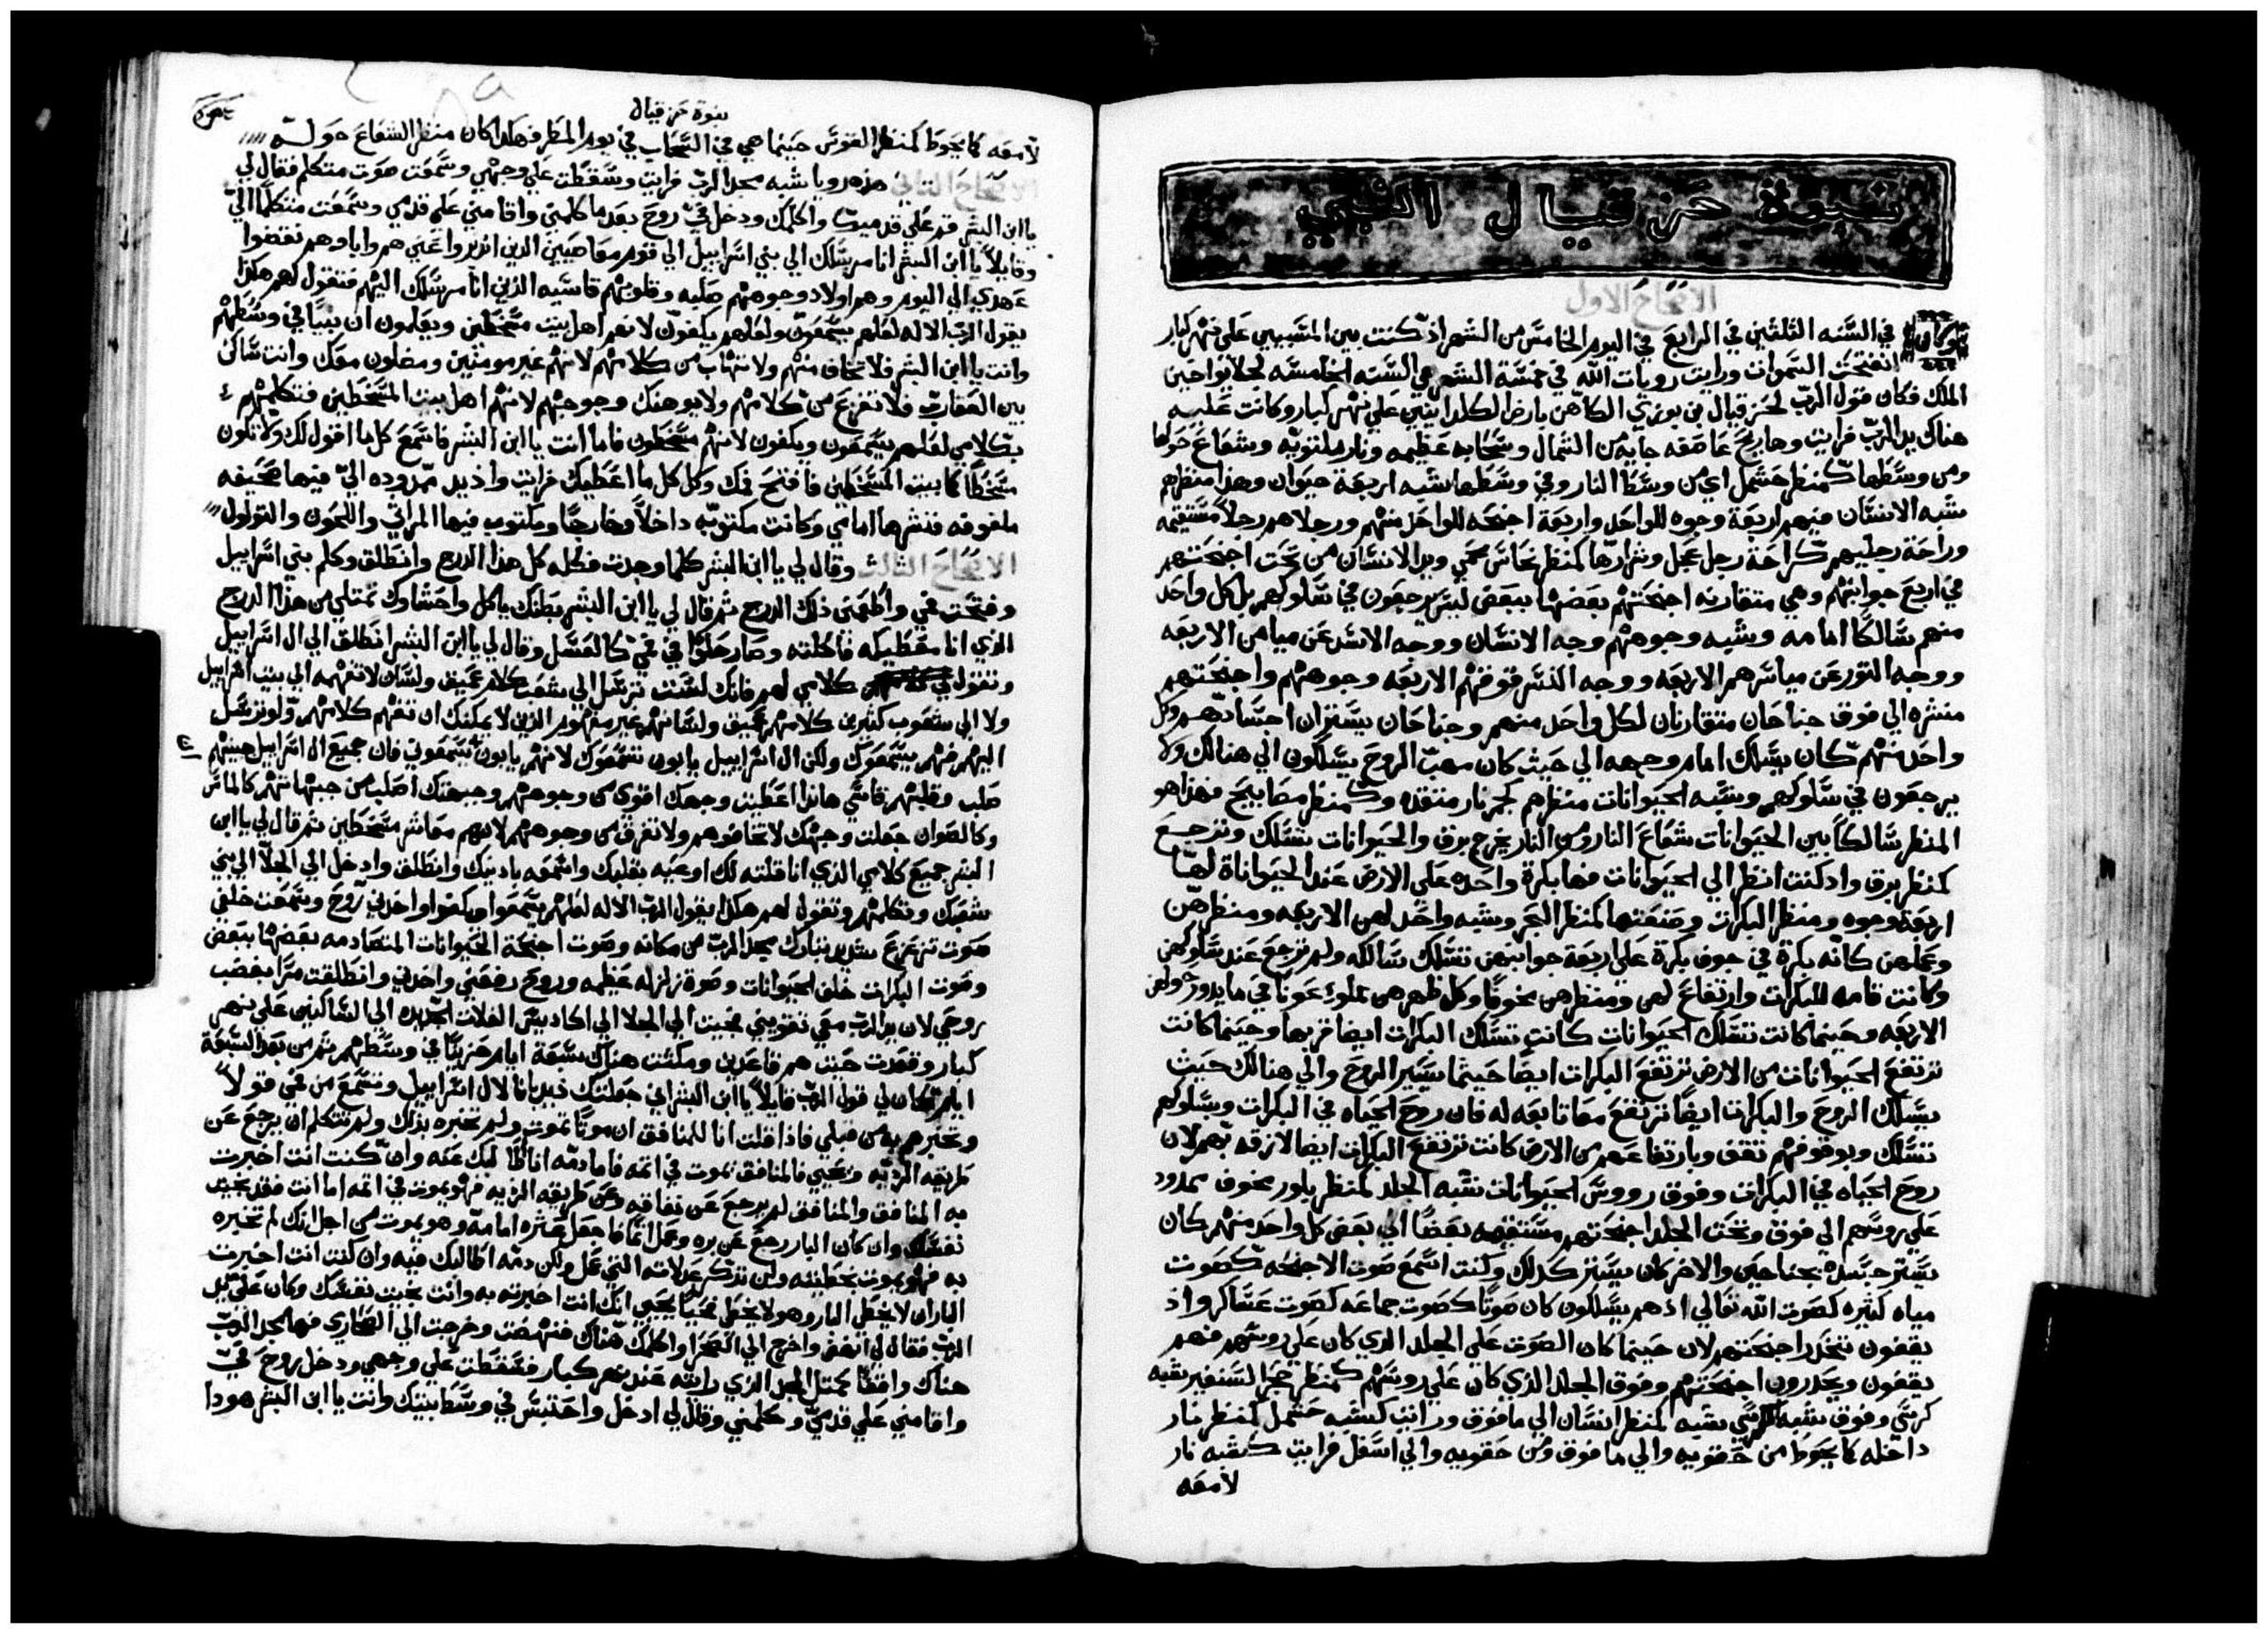 نبوة حزقيال النبي
الاصحاح الاول
وكان في السنه الثلثين في الرابع في اليوم الخامس من الشهر اذ كنت بين المسبيين على نهر كبار
انفتحت السموات ورايت رويات الله في خمسة الشهر هي السنه الخامسه لجلا يواحين
الملك فكان قول الرب لحزقيال بن بوزي الكاهن بارض الكلدانيين على نهر كبار وكانت عليه
هناك يد الرب فرايت وها ريح عاصفه جايه من الشمال وسحابه عظيمه ونار ملتويه وشعاع حولها
ومن وسطها كمنظر حشمل اي من وسط النار وفي وسطها شبه اربعة حيوان وهذا منظرهم
شبه الانسان فيهم اربعة وجوه للواحد واربعة اجنحه للواحد منهم ورجلاهم رجلا مستقيمه
وراحة رجليهم كراحة رجل عجل وشرارها كمنظر نحاس محمي ويد الانسان من تحت اجنحتهم
في اربع جوانبهم وهي متقارنه اجنحتهم بعضها ببعض ليس يرجعون في سلوكهم بل كل واحد
منهم سالكا امامه وشبه وجوههم وجه الانسان ووجه الاسد عن ميامن الاربعه
ووجه الثور عن مياسرهم الاربعه ووجه النسر فوقهم الاربعه وجوههم واجنحتهم
منشره الي فوق جناحان متقارنان لكل واحد منهم وجناحان يستران اجسادهم وكل
واحد منهم كان يسلك امام وجهه الي حيث كان مهب الروح يسلكون الي هنالك ولا
يرجعون في سلوكهم وشبه الحيوانات منظرهم كجمر نار متقده وكمنظر مصابيح فهذا هو
المنظر سالكا بين الحيوانات شعاع النار ومن النار يخرج برق والحيوانات تسلك وترجع
كمنظر برق واذ كنت انظر الي الحيوانات فها بكرة واحده على الارض عند الحيواناة لها
اربعة وجوه ومنظر البكرات وصنعتها كمنظر البحر وشبه واحد لهن الاربعه ومنظرهن
وعملهن كانه بكرة في جوف بكرة علي اربعة جوانبهن تسلك سالكه ولم ترجع عند سلوكهن
وكانت قامه للبكرات وارتفاع لهن ومنظرهن مخوفا وكل ظهرهن مملوء عيونا في ما يدور حولهن
الاربعه وحينما كانت تسلك الحيوانات كانت تسلك البكرات ايضا قربها وحينما كانت
ترتفع الحيوانات من الارض ترتفع البكرات ايضا حيثما يسير الروح والي هنالك حيث
يسلك الروح والبكرات ايضا ترتفع معا تابعه له فان روح الحياه في البكرات وبسلوكهم
تسلك وبوقوفهم تقف وبارتفاعهم من الارض كانت ترتفع البكرات ايضا لازقه بهم لان
روح الحياه في البكرات وفوق رووس الحيوانات شبه الجلد كمنظر بلور مخوف ممدود
علي روسهم الي فوق وتحت الجلد اجنحتهم مستقيمه بعضا الي بعض كل واحد منهم كان
يستر جسده بجناحين والاخر كان يستر كذلك وكنت اسمع صوت الاجنحه كصوت
مياه كثيره كصوت الله تعالي اذ هم يسلكون كان صوتا كصوت جماعه كصوت عساكر واذ
يقفون تنحدر اجنحتهم لان حينما كان الصوت علي الجلد الذي كان علي روسهم فهم
يقفون ويحدرون اجنحتهم وفوق الجلد الذي كان علي روسهم كمنظر حجر السنفير بشبه
كرسي وفوق شبه الكرسي بشبه كمنظر انسان الي ما فوق ورايت كشبه حشمل كمنظر نار
داخله كما يحوط من حقويه والي ما فوق ومن حقويه والي اسفل فرايت كشبه نار
لامعه
نبوة حزقيال
لامعه كما يحوط كمنظر القوس حينما هي في السحاب في يوم المطر فهكذا كان منظر الشعاع حوله
الاصحاح الثاني هذه رويا شبه مجد الرب فرايت وسقطت علي وجهي وسمعت صوت متكلم فقال لي
يا ابن البشر قم علي قدميك واكلمك ودخل في روح بعد ما كلمني واقامني علي قدمي وسمعت متكلما الي
وقايلا يا ابن البشر انا مرسلك الي بني اسراييل الي قوم معاصيين الذين انزبروا عني هم واباوهم نقضوا
عهدي الي اليوم وهم اولاد وجوههم صلبه وقلوبهم قاسيه الذين انا مرسلك اليهم فتقول لهم هكذا
يقول الرب الاله لعلهم يسمعون ولعلهم يكفون لانهم اهل بيت مسخطين ويعلمون ان نبيا في وسطهم
وانت يا ابن البشر فلا تخاف منهم ولا تهاب من كلامهم لانهم غير مومنين ومضلون معك وانت ساكن
بين العقارب فلا تفزع من كلامهم ولا يوهنك وجوههم لانهم اهل بيت المسخطين فتكلمهم
بكلامي لعلهم يسمعون ويكفون لانهم مسخطون فاما انت يا ابن البشر فاسمع كلما اقول لك ولا تكون
مسخطا كما بيت المسخطين فافتح فمك وكل كل ما اعطيك فرايت واذ يد ممدوده الي فيها صحيفه
ملفوفه فنشرها امامي وكانت مكتوبه داخلا وخارجا ومكتوب فيها المراثي واللحون والتولول
الاصحاح الثالث وقال لي يا ابن البشر كلما وجدت فكله كل هذا الدرج وانطلق وكلم بني اسراييل
وفتحت في واطعمني ذلك الدرج ثم قال لي يا ابن البشر بطنك ياكل واحشاوك تمتلي من هذا الدرج
الذي انا معطيكه فاكلته وصار حلوا في في كالعسل وقال لي يا ابن البشر انطلق الي ال اسراييل
وتقول كلامي لهم فانك لست ترسل الي شعب كلام عميق ولسان لا تفهمه الي بيت اسراييل
ولا الي شعوب كثيرين كلامهم عميق ولسانهم غير مفهوم الذين لا يمكنك ان تفهم كلامهم ولو نرسل
اليهم فهم يسمعوك ولكن ال اسراييل يابون تسمعوك لانهم يابون تسمعوني فان جميع ال اسراييل جبينهم
صلب فقلبهم قاسي هانذا اعطيت وجهك اقوي من وجوههم وجبهتك اصلب من جبهاتهم كالماس
وكالصوان جعلت وجهك لا تخافوهم ولا تفرق من وجوههم لانهم معاشر مسخطين ثم قال لي يا ابن
البشر جميع كلامي الذي انا قلته لك اوعيه بقلبك واسمعه باذنيك وانطلق وادخل الي الجلا الي بني
شعبك وتكلمهم وتقول لهم هكذا يقول الرب الاله لعلهم يسمعوا ويكفوا واخذني روح وسمعت خلفي
صوت تزعزع شديد تبارك مجد الرب من مكانه وصوت اجنحة الحيوانات المتصادمه بعضها ببعض
وصوت البكرات خلف الحيوانات وصوة زلزله عظيمه وروح رفعني واخذني وانطلقت مرا بغضب
روحي لان يد الرب معي تقويني فجيت الي الجلا الي اكاديس الغلات الجديده الي الساكنين علي نهر
كبار وقعدت حيث هم قاعدين ومكثت هناك سبعة ايام حزينا في وسطهم ثم من بعد السبعة
ايام كان لي قول الرب قايلا يا ابن البشر اني جعلتك ذيدبانا لال اسراييل وتسمع من في قولا
وتخبرهم به من قبلي فاذا قلت انا للمنافق ان موتا تموت ولم تخبره بذلك ولم تتكلم ان يرجع عن
طريقه الرديه ويحيي فالمنافق يموت في اثمه فاما دمه انا طالبك عنه وان كنت انت اخبرت
به المنافق والمنافق لم يرجع عن نفاقه وعن طريقه الرديه فهو يموت في اثمه اما انت فقد نجيت
نفسك وان كان البار رجع عن بره وعمل اثما فاجعل عثره امامه وهو يموت من اجل انك لم تخبره
به فهو يموت بخطيته ولن تذكر عدلاته التي عمل ولكن دمه اطالبك فيه وان كنت انت اخبرت
البار ان لا يخطي البار وهو لا يخطي فحيا يحيي انك انت اخبرته به وانت نجيت نفسك وكان علي يد
الرب فقال لي انهض واخرج الي الصحرا واكلمك هناك فنهضت وخرجت الي الصحاري فها مجد الرب
هناك واقفا كمثل المجد الذي رايته عند نهر كبار فسقطت علي وجهي ودخل روح في
واقامني علي قدمي وكلمني وقال لي ادخل واحتبس في وسط بيتك وانت يا ابن البشر هوذا